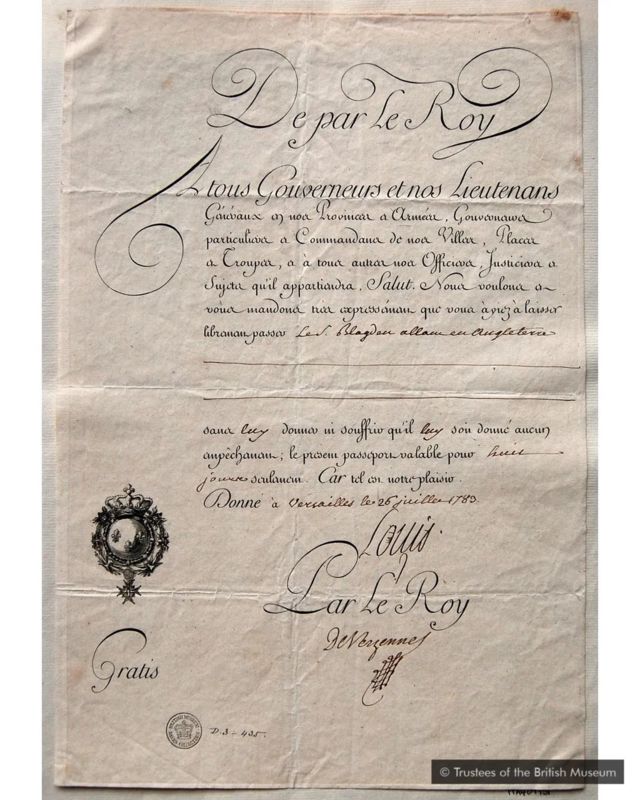 De par Le Roy
A tous Gouverneurs et nos Lieutenans
Généraux en nos Provinces et Armées, Gouverneurs
particuliers et Commandans de nos Villes, Places
et Troupes, et à tous autres nos Officiers Justiciers et
Sujets qu'il appartiendra, Salut. Nous voulons et
vous mandons très expressément que vous ayez à laisser
librement passer Le S. Blagden allant en Angleterre
sans luy donner ni souffrir qu'il luy soit donné aucun
empêchement; le present passeport valable pour huit
jours seulement. Car tel est notre plaisir.
Donné à Versailles le 26 juillet 1783
Louis
Par Le Roy
De Vergennes
Gratis
D.3-435.
© Trustees of the British Museum